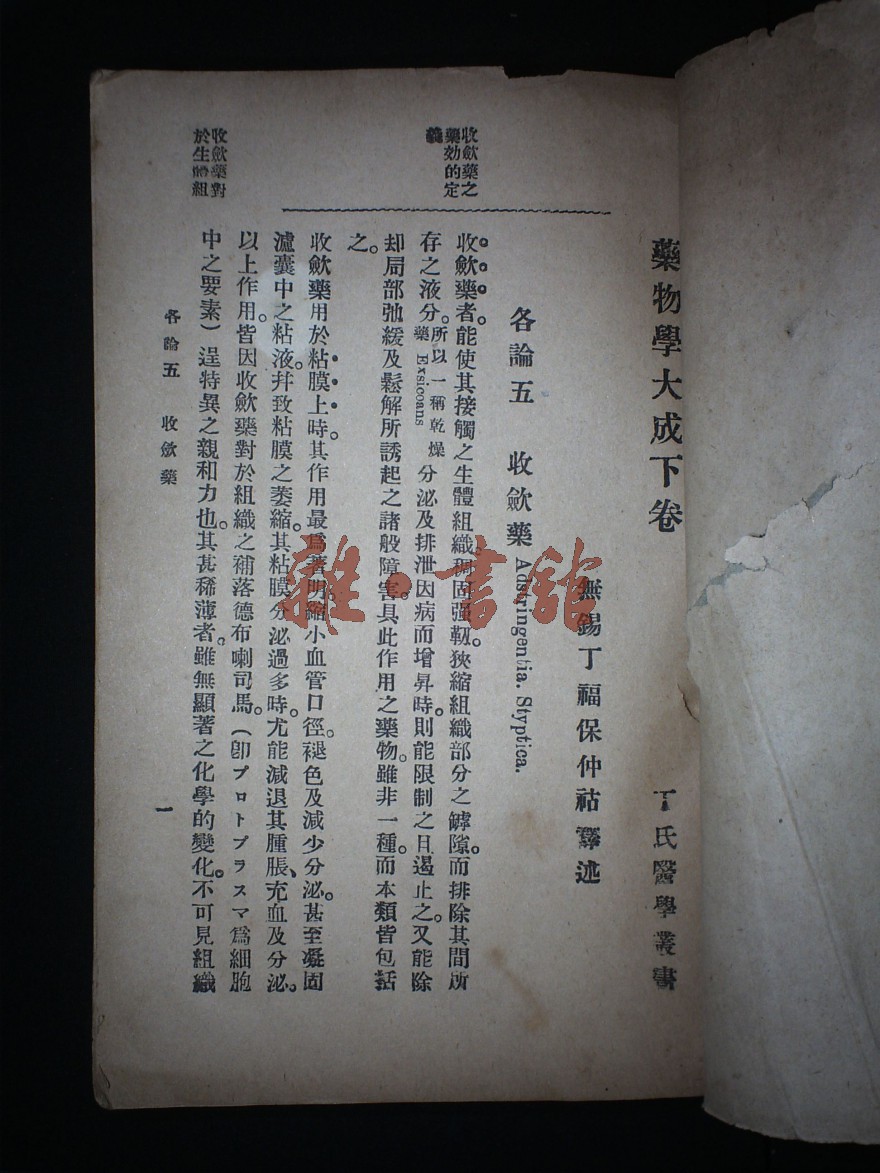 藥物學大成下卷
丁氏醫學叢書
無錫丁福保仲祜譯述
各論五 收斂藥 Adstringentia. Styptica.
收斂藥之
藥効的定
義
收斂藥者。能使其接觸之生體組織稠固强靱。狹縮組織部分之罅隙。而排除其間所
存之液分。所以一稱乾燥藥 Exsiccans 分泌及排泄因病而增昇時。則能限制之且遏止之。又能除
却局部弛緩及鬆解所誘起之諸般障害。具此作用之藥物。雖非一種。而本類皆包括
之。
收斂藥用於粘膜上時。其作用最爲著明。縮小血管口徑。褪色及減少分泌。甚至凝固
濾囊中之粘液。幷致粘膜之萎縮。其粘膜分泌過多時。尤能減退其腫脹、充血及分泌。
收斂藥對
於生體組
以上作用。皆因收斂藥對於組織之補落德布喇司馬。(卽プロトプラスマ爲細胞
中之要素)逞特異之親和力也。其甚稀薄者。雖無顯著之化學的變化。不可見組織
各論五 收斂藥
一
雜·書館